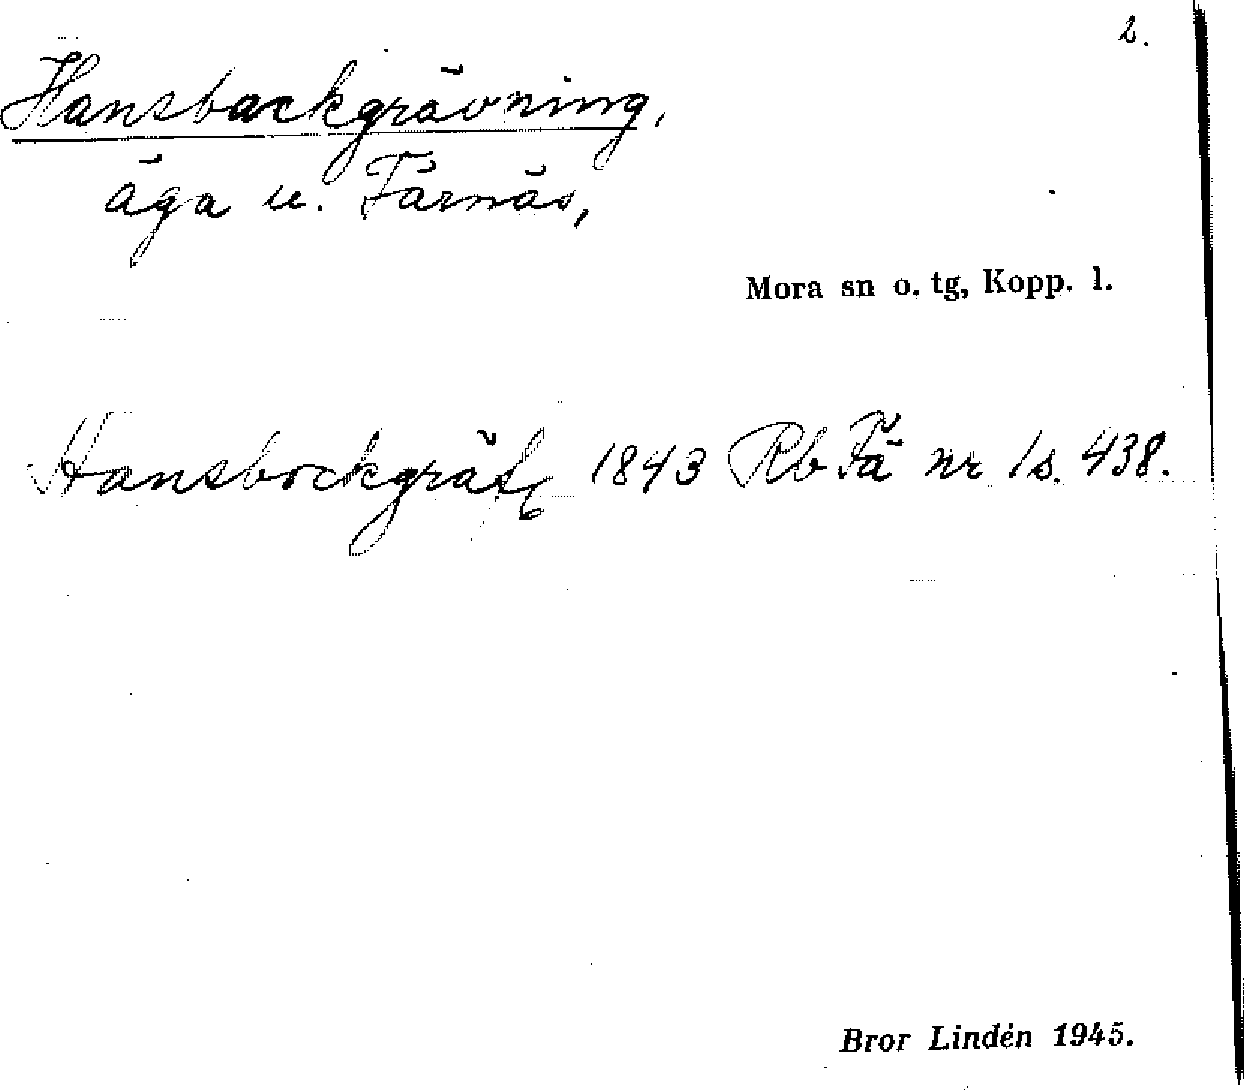 2.
Hansbackgrävning,
äga u. Färnäs,
Mora sn o. tg, Kopp. l.
Hansbockgräfn 1843 Rb Fä nr 1 s. 438.
Bror Lindén 1945.